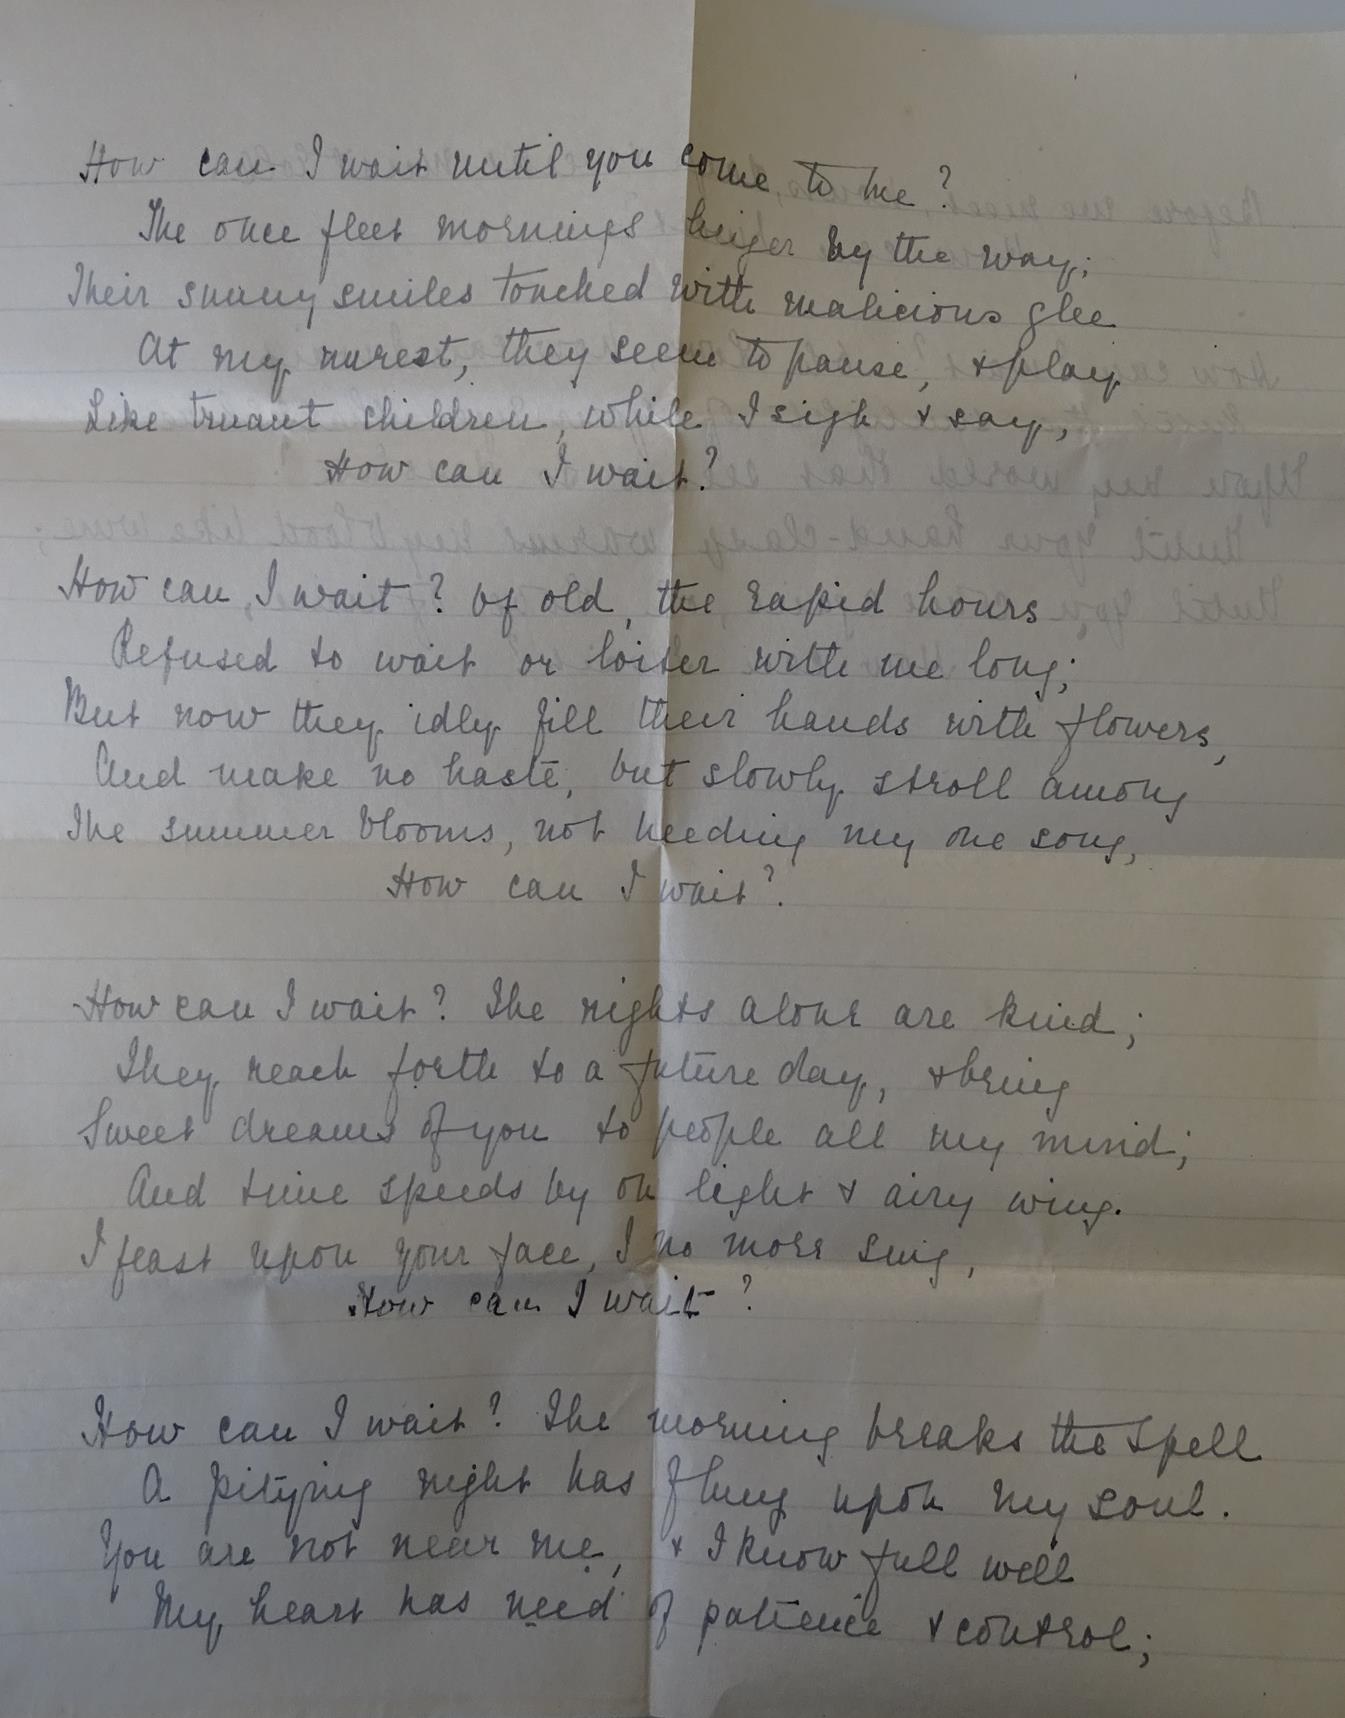 How can I wait until you come to me?
The once fleet mornings linger by the way;
Their sunny smiles touched with malicious glee
At my unrest, they seem to pause, & play
Like truant children, while I sigh & say,
How can I wait?
How can I wait? Of old, the rapid hours
Refused to wait or loiter with me long;
But now they idly fill their hands with flowers,
And make no haste, but slowly stroll among
The summer blooms, not heeding my one song,
How can I wait?
How can I wait? The nights alone are kind;
They reach forth to a future day, & bring
Sweet dreams of you to people all my mind;
And time speeds by on light & airy wing.
I feast upon your face, I no more sing,
How can I wait?
How can I wait? The morning breaks the spell
A pitying night has flung upon my soul.
You are not near me, & I know full well
My heart has need of patience & control;